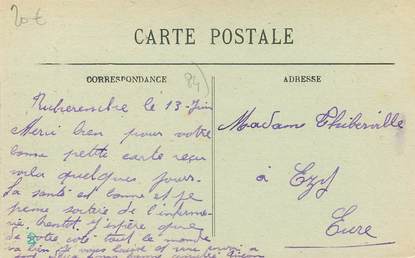 20€
CARTE POSTALE
CORRESPONDANCE
84
ADRESSE
le 13 Juin
Merci bien pour votre
bonne petite carte reçu
voila quelques jours.
La santé est bonne et je
pense sortir de l'infirme-
rie bientot. J'espère que
de votre coté tout le monde
va bien
Madame Thiberville
à Ezy
Eure